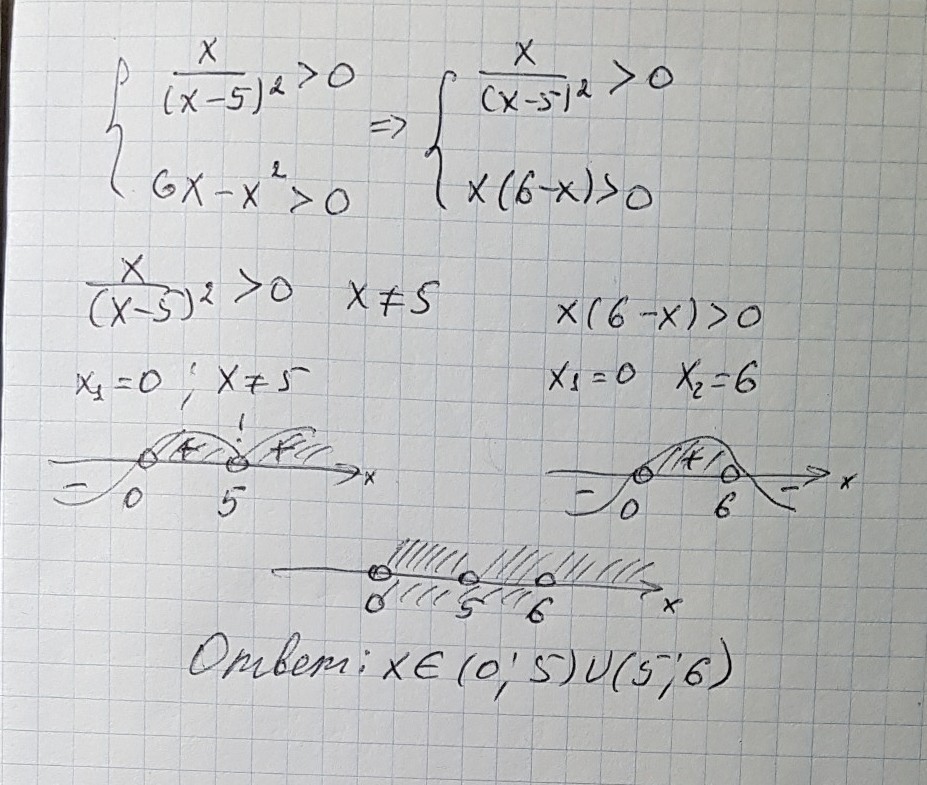 x/(x-5)² > 0 => x/(x-5)² > 0
6x-x² > 0 x(6-x) > 0
x/(x-5)² > 0 x ≠ 5 x(6-x) > 0
x₁=0; x ≠ 5 x₁=0 x₂=6
+ + x + x
- 0 5 - 0 6 -
0 5 6 x
Ответ: x∈(0;5)∪(5;6)